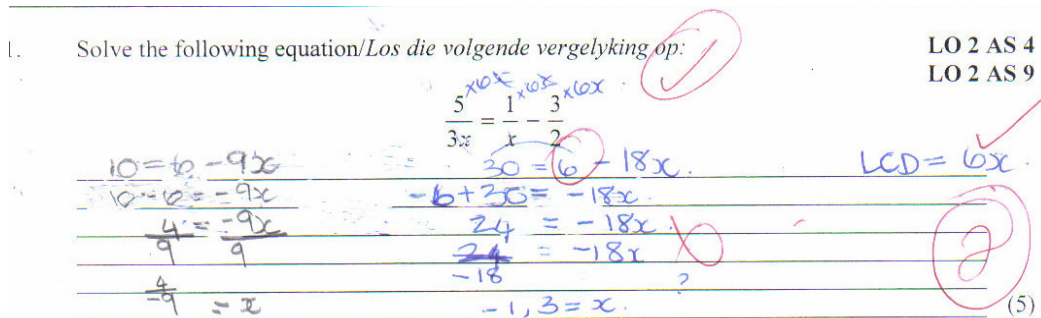 1. Solve the following equation/Los die volgende vergelyking op: LO 2 AS 4
LO 2 AS 9
5/3x ×6x = 1/x ×6x - 3/2 ×6x
10 = 6 - 9x 30 = 6 - 18x. LCD = 6x.
10 - 6 = -9x -6 + 30 = -18x.
4/9 = -9x/9 24 = -18x.
24/-18 = -18x
4/-9 = x -1,3 = x. ? 2 (5)